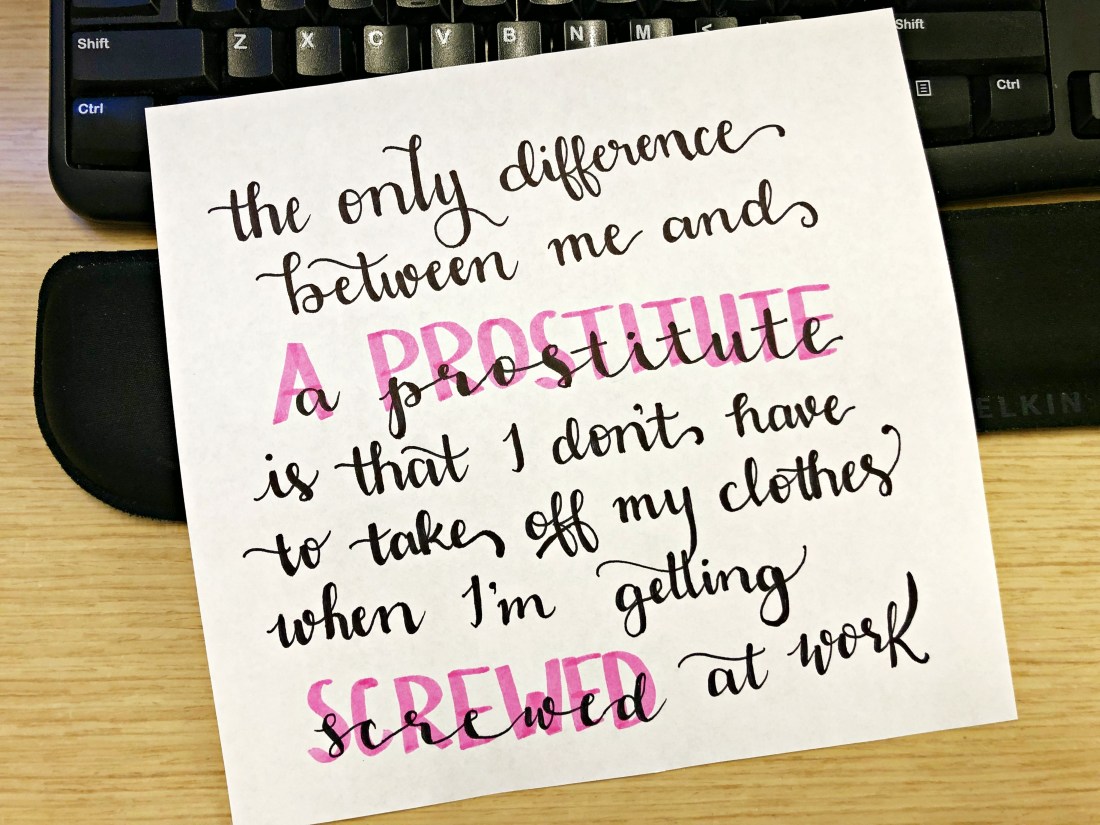 Shift Z X C V B N M < Shift
Ctrl Ctrl
the only difference
between me and
A PROSTITUTE
a prostitute
is that I don't have
to take off my clothes
when I'm getting
SCREWED
screwed at work
ELKIN